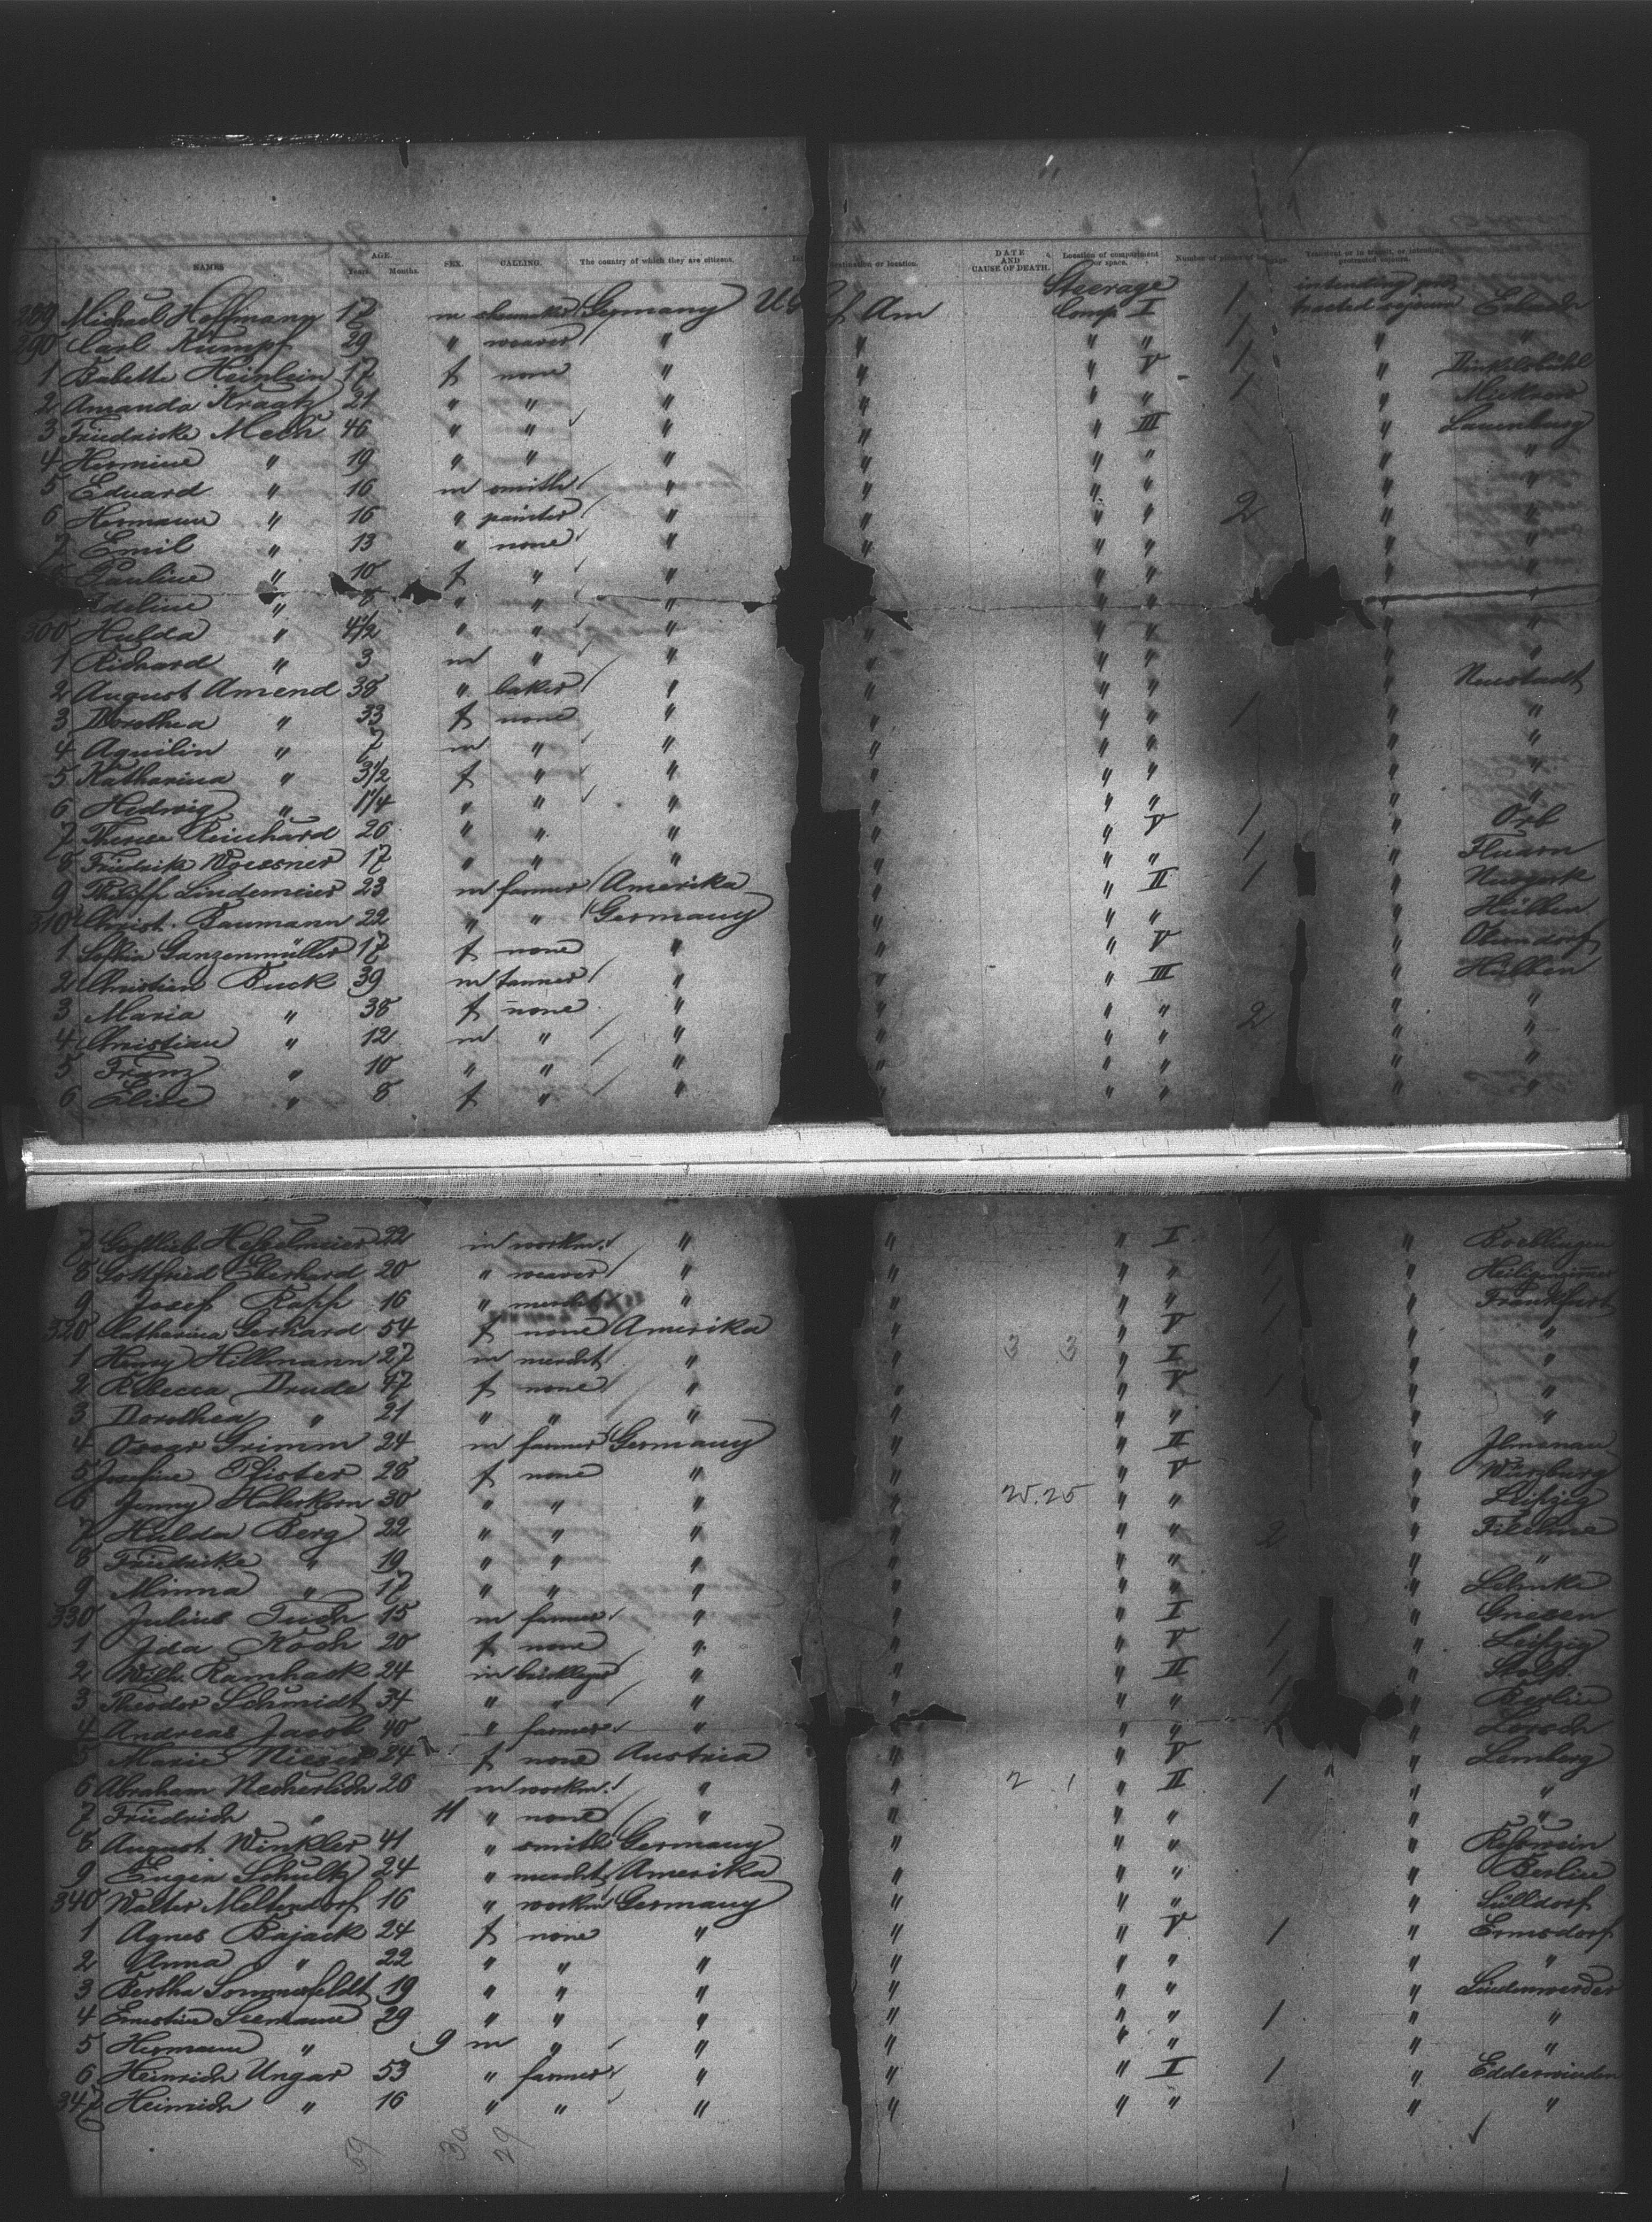 NAMES AGE. Years. Months. SEX. CALLING. The country of which they are citizens. destination or location. DATE AND CAUSE OF DEATH. Location of compartment or space. Number of pieces of baggage. Transient or in transit, or intending protracted sojourn.
Steerage intending pro
289 Michael Hoffmann 17 m Germany U S of Am Comp. I 1 tracted sojourn
290 Carl Kumpf 29 " weaver " " " " 1 " "
1 Babette Heinlein 17 f none " " " V 1 " Dinkelsbühl
2 Amanda Kraatz 21 " " " " " " 1 "
3 Friedricke Mech 46 " " " " " III " Lauenburg
4 Hermine " 19 " " " " " " " "
5 Eduard " 16 m smith " " " " " "
6 Hermann " 16 " painter " " " " 2 " "
7 Emil " 13 " none " " " " " "
Pauline " 10 f " " " " " "
Adeline " 8 " " " " " " " "
300 Hulda " 4 1/2 " " " " " " " "
1 Richard " 3 m " " " " " " "
2 August Amend 38 " baker " " " " " Neustadt
3 Dorothea " 33 f none " " " " 1 " "
4 Aquilin " 7 m " " " " " " "
5 Katharina " 3 1/2 f " " " " " " "
6 Hedwig " 1 1/4 " " " " " " " "
7 Therese Reinhard 26 " " " " " V 1 " Orb
8 Friedrike Woessner 17 " " " " " " 1 " Fluorn
9 Philipp Lindemeier 23 m farmer Amerika " " II 1 " Newyork
310 Christ. Baumann 22 " " Germany " " " " Hülben
1 Sophia Ganzenmüller 17 f none " " " V "
2 Christian Buck 39 m farmer " " " III " Hülben
3 Maria " 38 f none " " " " 2 " "
4 Christian " 12 m " " " " " " "
5 Franz " 10 " " " " " " " "
6 Elise " 8 f " " " " " " "
7 Gottlieb 22 m workm. " " " I " Boeblingen
8 Gottfried Eberhard 20 " weaver " " " " 1 "
9 Josef Rapp 16 " mercht " " " " 1 " Frankfurt
320 Catharina Gerhard 54 f none Amerika " " V 1 " "
1 Henry Hillmann 27 m mercht " " 3 3 " I " "
2 Rebecca Drude 47 f none " " " V 1 " "
3 Dorothea " 21 " " " " " " " "
4 Oscar Grimm 24 m farmer Germany " " II " Ilmenau
5 Josefine Pfister 28 f none " " " V " Würzburg
6 Jenny Haberkorn 30 " " " " 25.25 " " " Leipzig
7 Hulda Berg 22 " " " " " " 2 " Filehne
8 Friedricke " 19 " " " " " " " "
9 Minna " 17 " " " " " " "
330 Julius Tuch 15 m farmer " " " I " Griesen
1 Ida Koch 20 f none " " " V 1 " Leipzig
2 Wilh. Ramhask 24 m bricklayer " " " II 1 " Stolp
3 Theodor Schmidt 34 " " " " " " 1 " Berlin
4 Andreas Jacob 40 " farmer " " " " 1 " Lorsch
5 Marie 24 f none Austria " " V " Lemberg
6 Abraham 26 m workm. " " 2 1 " II 1 " "
7 Friedrich " 11 " none " " " " " "
8 August Winkler 41 " smith Germany " " " " Roßwein
9 Eugen Schultz 24 " mercht Amerika " " " " Berlin
340 Walter Meltendorf 16 " workm Germany " " " " Sülldorf
1 Agnes Bajack 24 f none " " " V 1 " Ermsdorf
2 Anna " 22 " " " " " " " "
3 Bertha Sommerfeldt 19 " " " " " " " Lindenwerder
4 Ernestine Seemann 29 " " " " " " 1 " "
5 Hermann " 9 m " " " " " " "
6 Heinrich Ungar 53 " farmer " " " I 1 "
347 Heinrich " 16 " " " " " " " "
59 30 29